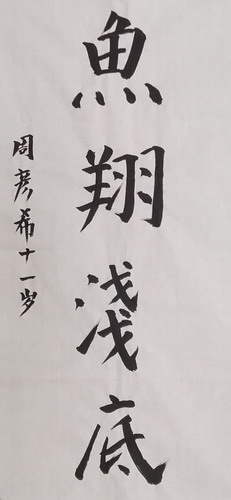 魚翔淺底
周彦希十一岁